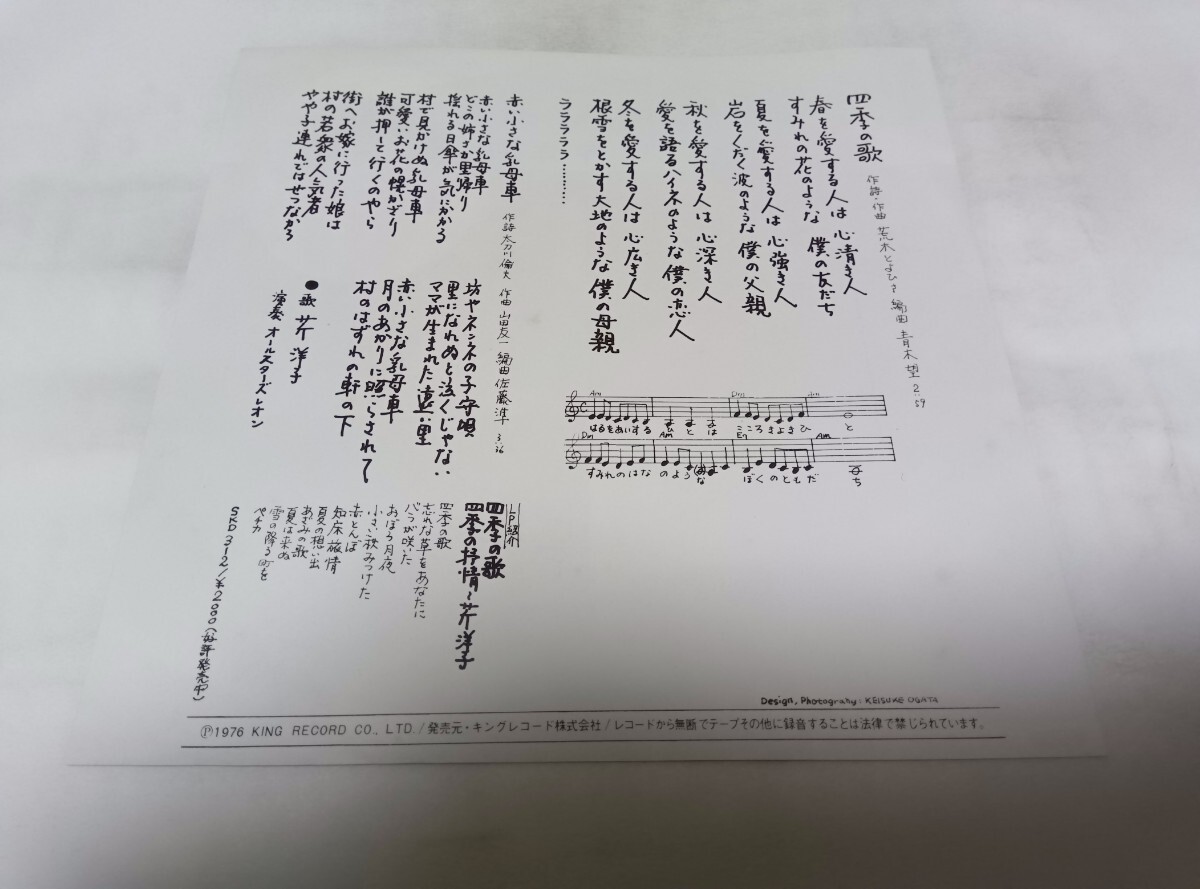 四季の歌
作詩・作曲 荒木とよひさ 編曲 青木望 2:59
春を愛する人は 心清き人
すみれの花のような 僕の友だち
夏を愛する人は 心強き人
岩をくだく波のような 僕の父親
秋を愛する人は 心深き人
愛を語るハイネのような 僕の恋人
冬を愛する人は 心広き人
根雪をとかす大地のような 僕の母親
ラララララ…………
Am Dm Am
はるをあいする ひとは こころきよきひ と
Dm Am E7 Am
すみれのはな のような ぼくのともだ ち
赤い小さな乳母車
作詩 太刀川倫夫 作曲 山田友一 編曲 佐藤準 3:36
赤い小さな乳母車
どこの姉さか里帰り
揺れる日傘が気にかかる
村で見かけぬ乳母車
可愛いお花の幌かざり
誰が押して行くのやら
街へお嫁に行った娘は
村の若衆の人気者
やや子連れではせつなかろ
坊やネンネの子守唄
里になれぬと泣くじゃない
ママが生まれた遠い里
赤い小さな乳母車
月のあかりに照らされて
村のはずれの軒の下
●歌 芹洋子
演奏 オールスターズレオン
LP紹介
四季の歌
四季の抒情~芹洋子
四季の歌
忘れな草をあなたに
バラが咲いた
おぼろ月夜
小さい秋みつけた
赤とんぼ
知床旅情
夏の想い出
あざみの歌
夏は来ぬ
雪の降る町を
ペチカ
SKD312/¥2000(好評発売中)
Design, Photograhy: KEISUKE OGATA
Ⓟ1976 KING RECORD CO., LTD./発売元・キングレコード株式会社/レコードから無断でテープその他に録音することは法律で禁じられています。